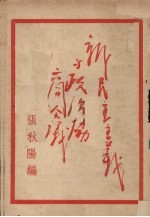 新民主主義
与政治協
商会議
張秋陽編